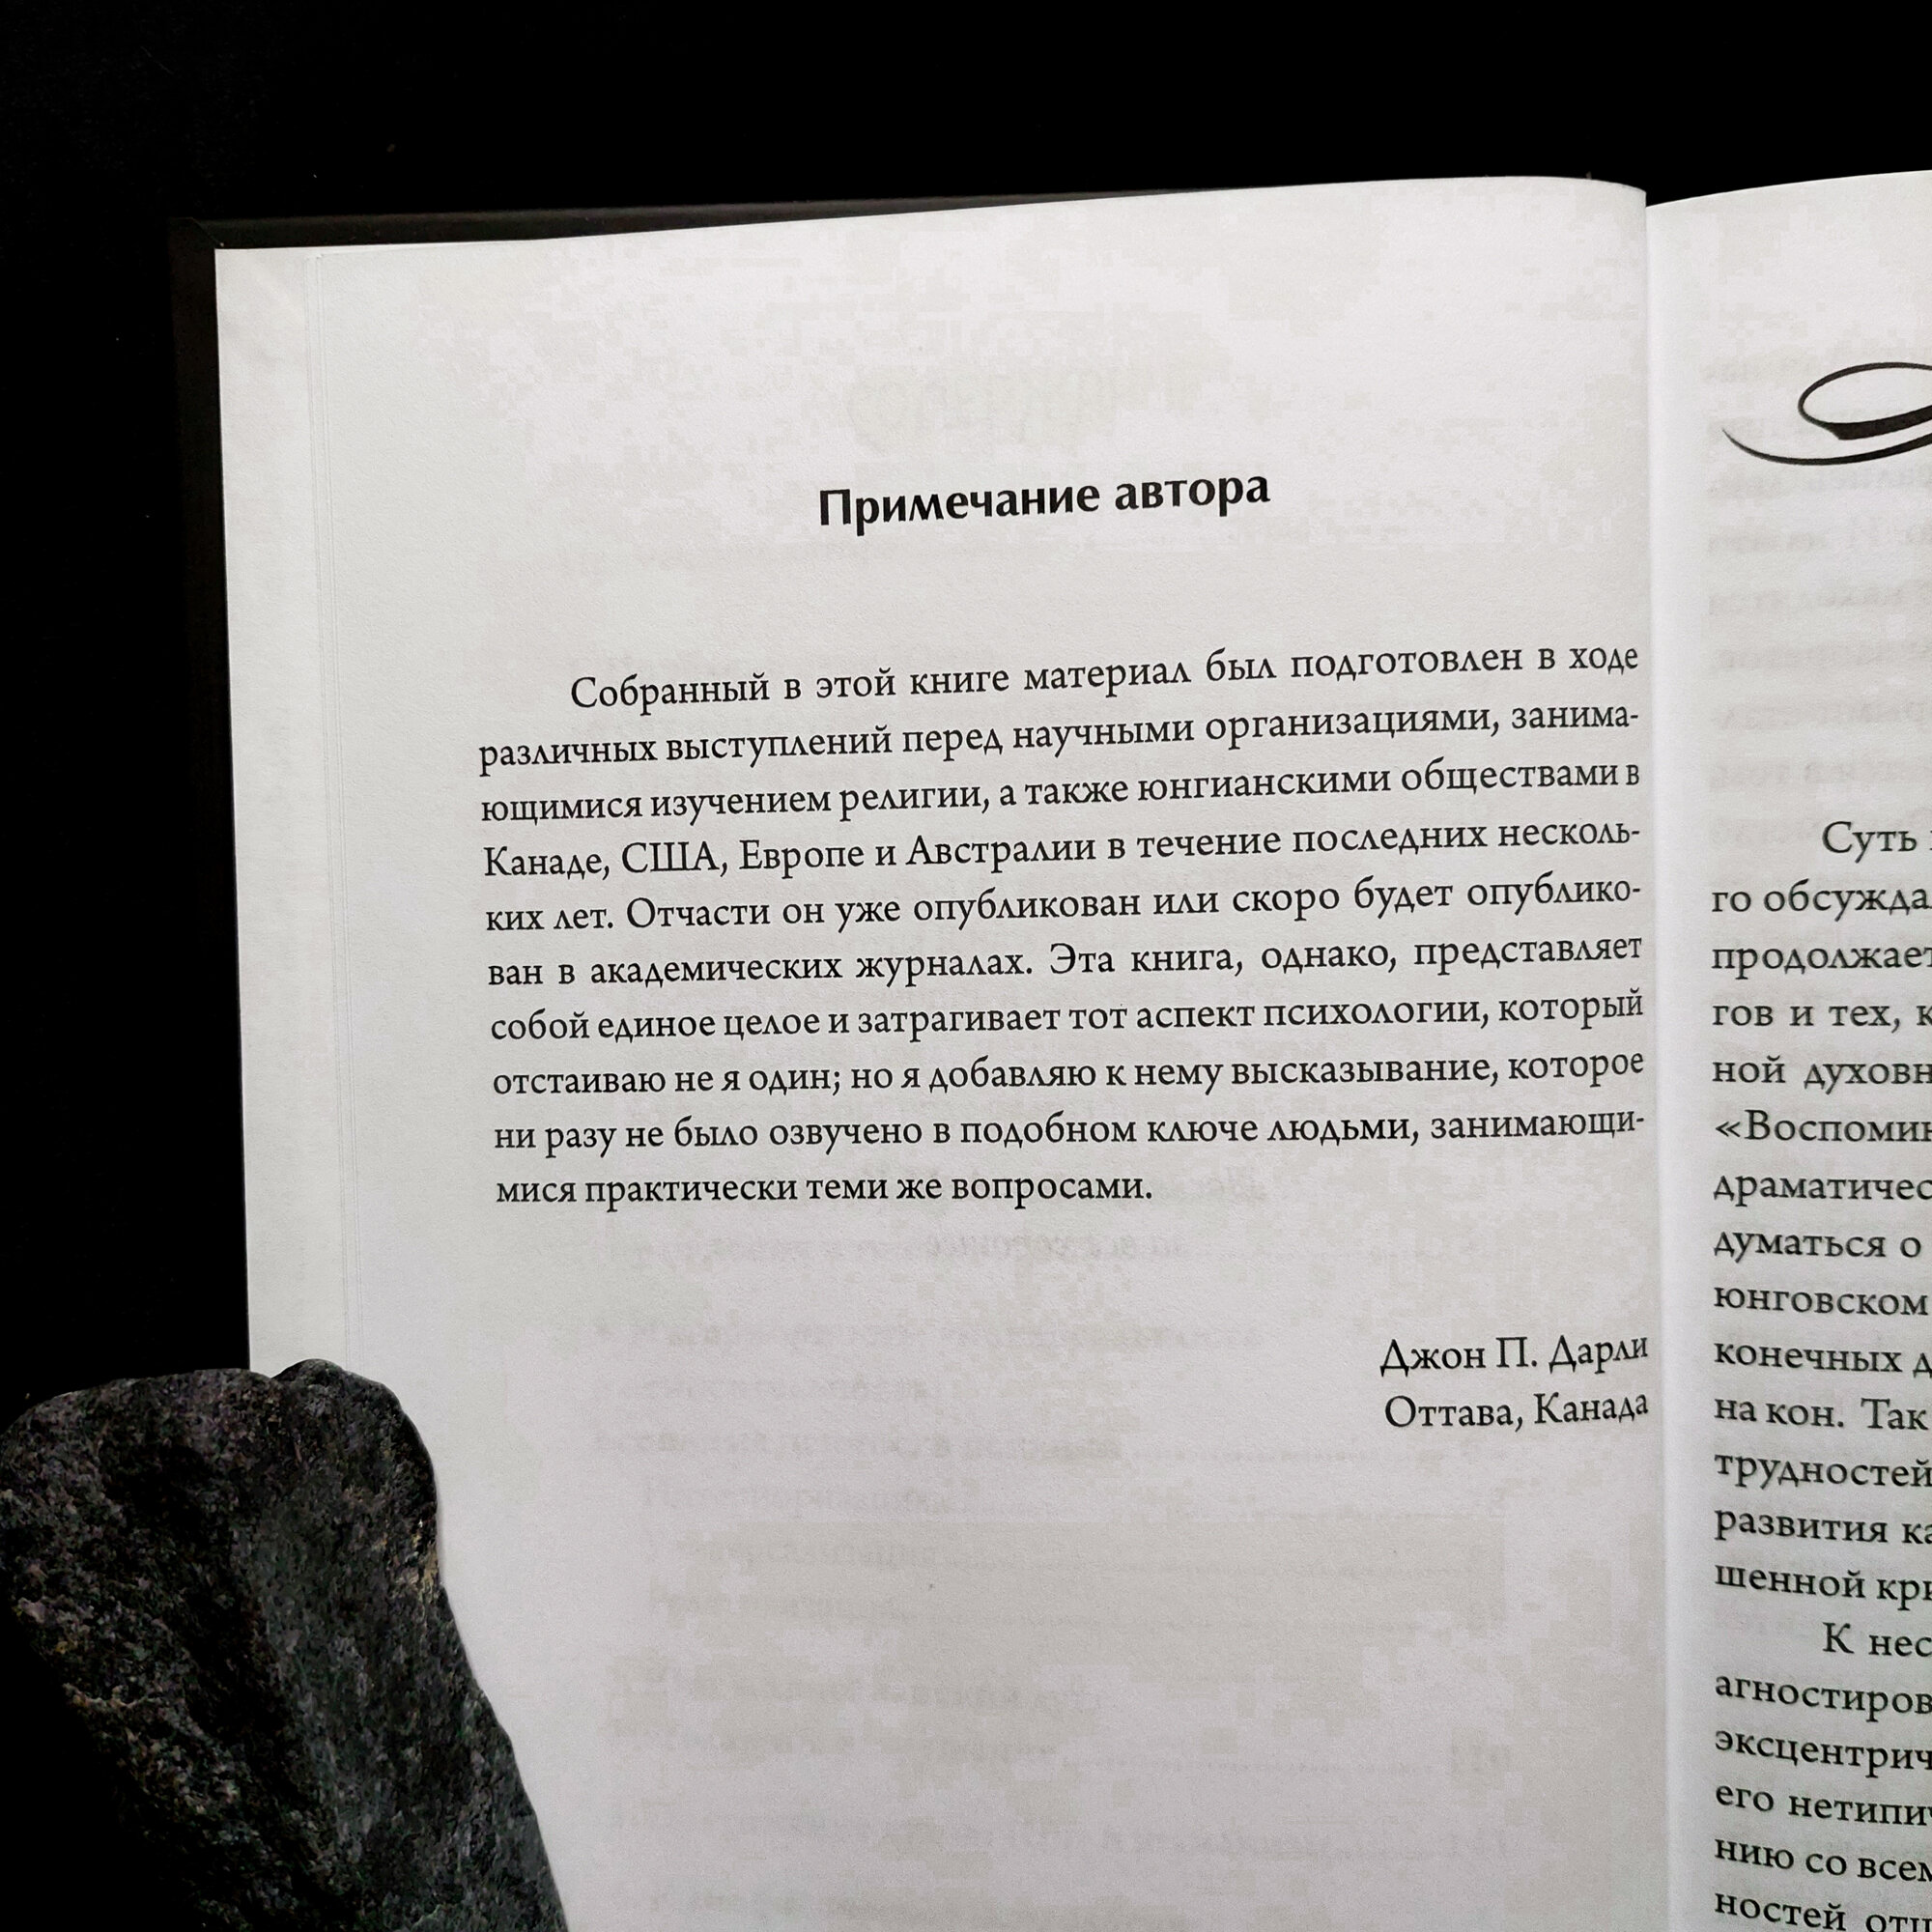 Примечание автора
Собранный в этой книге материал был подготовлен в ходе
различных выступлений перед научными организациями, занима-
ющимися изучением религии, а также юнгианскими обществами в
Канаде, США, Европе и Австралии в течение последних несколь-
ких лет. Отчасти он уже опубликован или скоро будет опублико-
ван в академических журналах. Эта книга, однако, представляет
собой единое целое и затрагивает тот аспект психологии, который
отстаиваю не я один; но я добавляю к нему высказывание, которое
ни разу не было озвучено в подобном ключе людьми, занимающи-
мися практически теми же вопросами.
Джон П. Дарли
Оттава, Канада
Суть
го обсужда
продолжает
гов и тех, к
ной духовн
«Воспомин
драматичес
думаться о
юнговском
конечных д
на кон. Так
трудностей
развития ка
шенной кри
К нес
агностиров
эксцентрич
его нетипич
нию со всем
ностей отц